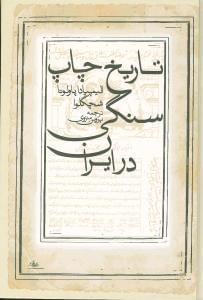 تاریخ چاپ
سنگی
در ایران
الیمپیادا پاولونا
شچگلوا
ترجمه
پروین منزوی